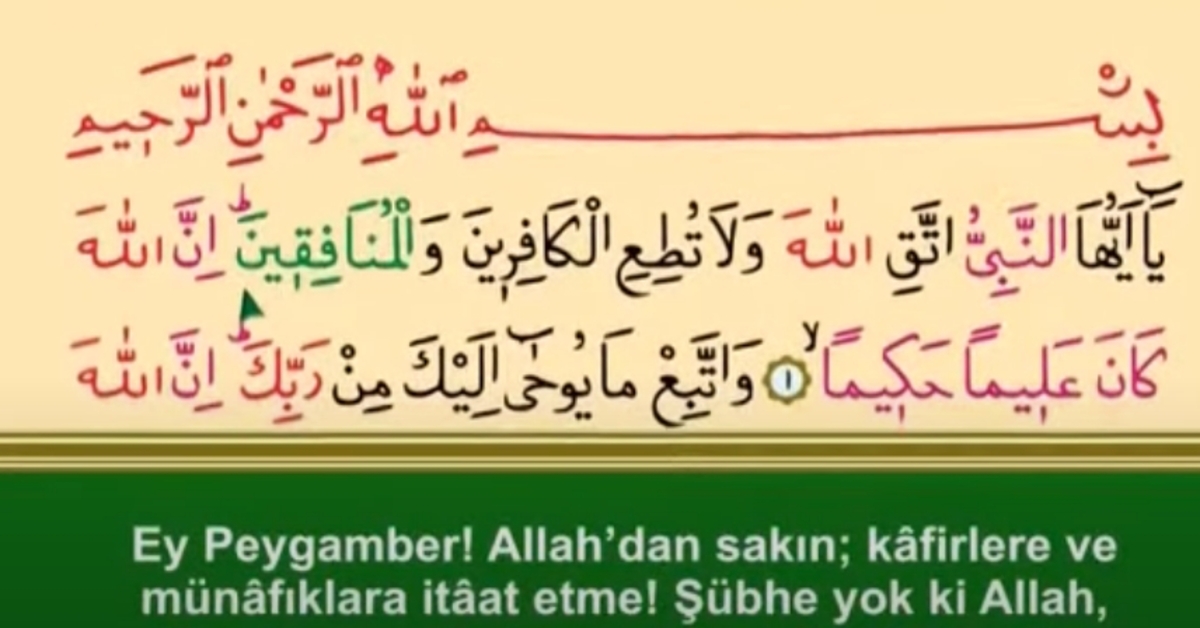 بِسْــــــــــــــــــــــمِ ٱللّٰهِ ٱلرَّحْمٰنِ ٱلرَّح۪يمِ
يَٓا اَيُّهَا النَّبِيُّ اتَّقِ اللّٰهَ وَلَا تُطِعِ الْكَافِر۪ينَ وَالْمُنَافِق۪ينَۜ اِنَّ اللّٰهَ
كَانَ عَل۪يماً حَك۪يماًۙ ١ وَاتَّبِعْ مَا يُوحٰٓى اِلَيْكَ مِنْ رَبِّكَۜ اِنَّ اللّٰهَ
Ey Peygamber! Allah’dan sakın; kâfirlere ve
münâfıklara itâat etme! Şübhe yok ki Allah,